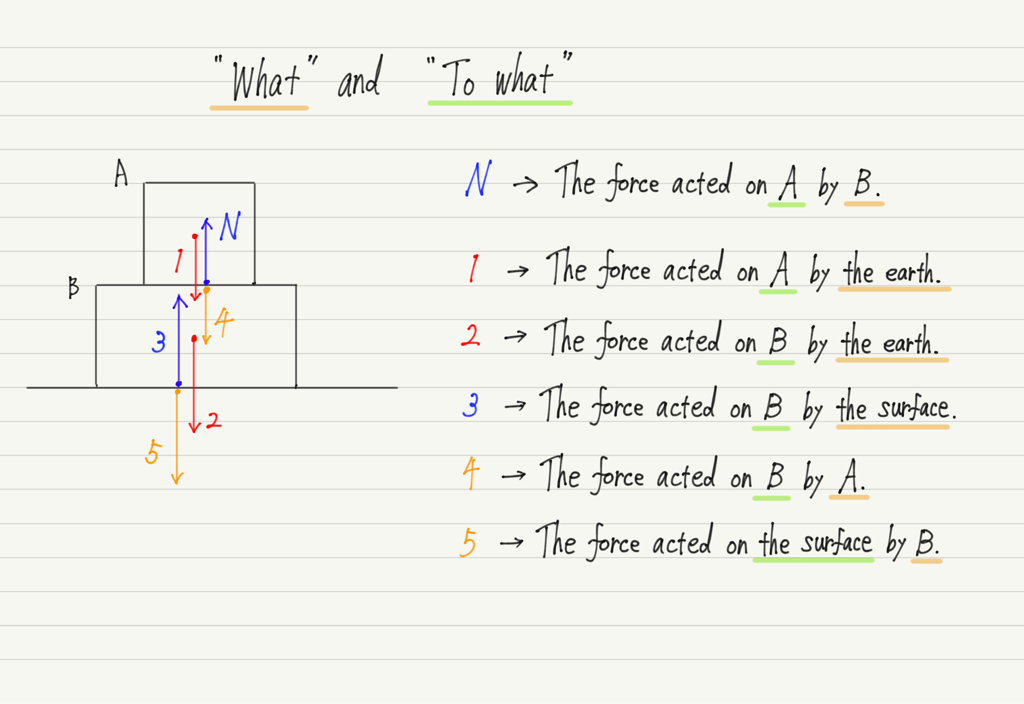 "What" and "To what"
A
N
1
B
4
3
2
5
N → The force acted on A by B.
1 → The force acted on A by the earth.
2 → The force acted on B by the earth.
3 → The force acted on B by the surface.
4 → The force acted on B by A.
5 → The force acted on the surface by B.